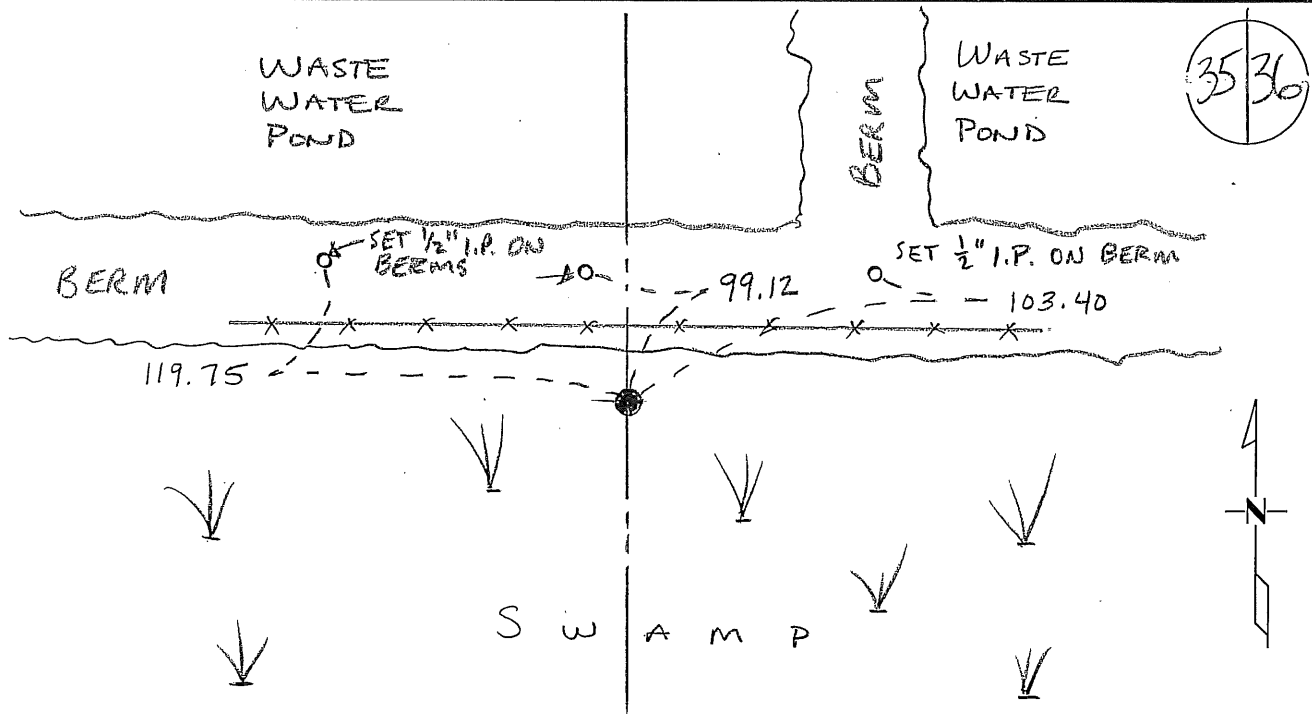 WASTE
WATER
POND
BERM
WASTE
WATER
POND
35 36
SET 1/2" I.P. ON
BERMS
SET 1/2" I.P. ON BERM
BERM
99.12
103.40
119.75
N
SWAMP